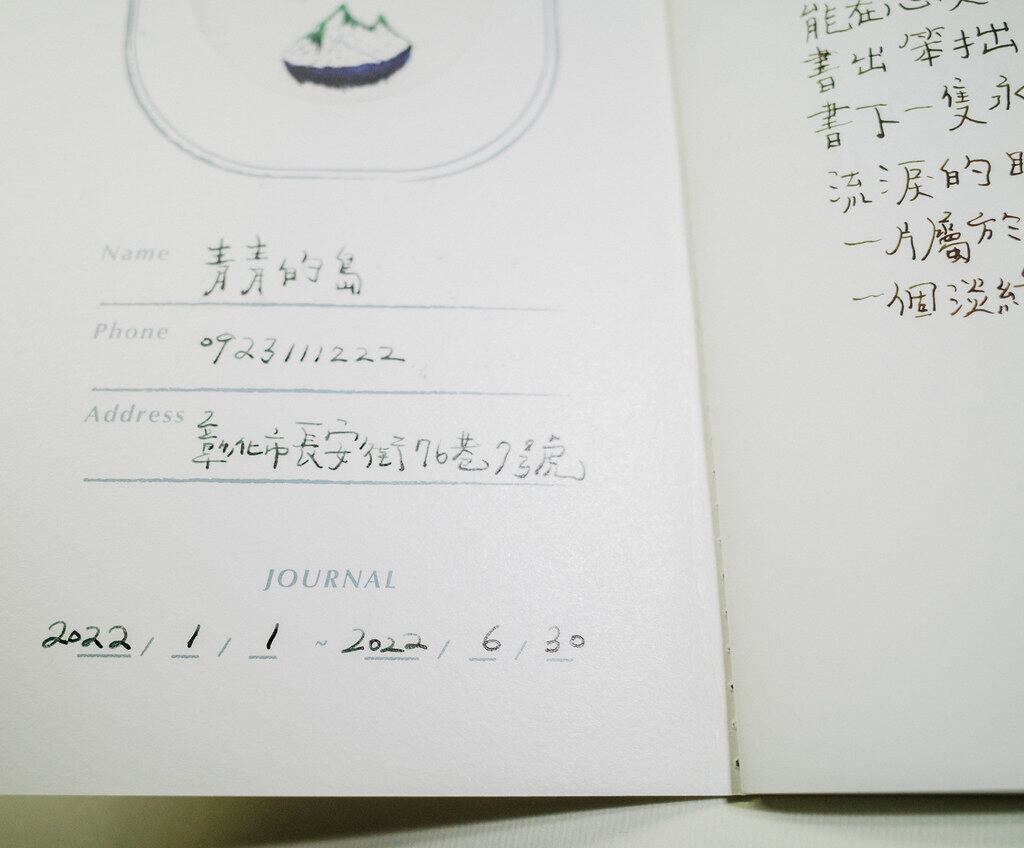 Name 青青的島
Phone 0923111222
Address 彰化市長安街76巷7號
JOURNAL
2022 / 1 / 1 ~ 2022 / 6 / 30
能在
書出笨拙
書下一隻永
流淚的
一片屬於
一個淡綠